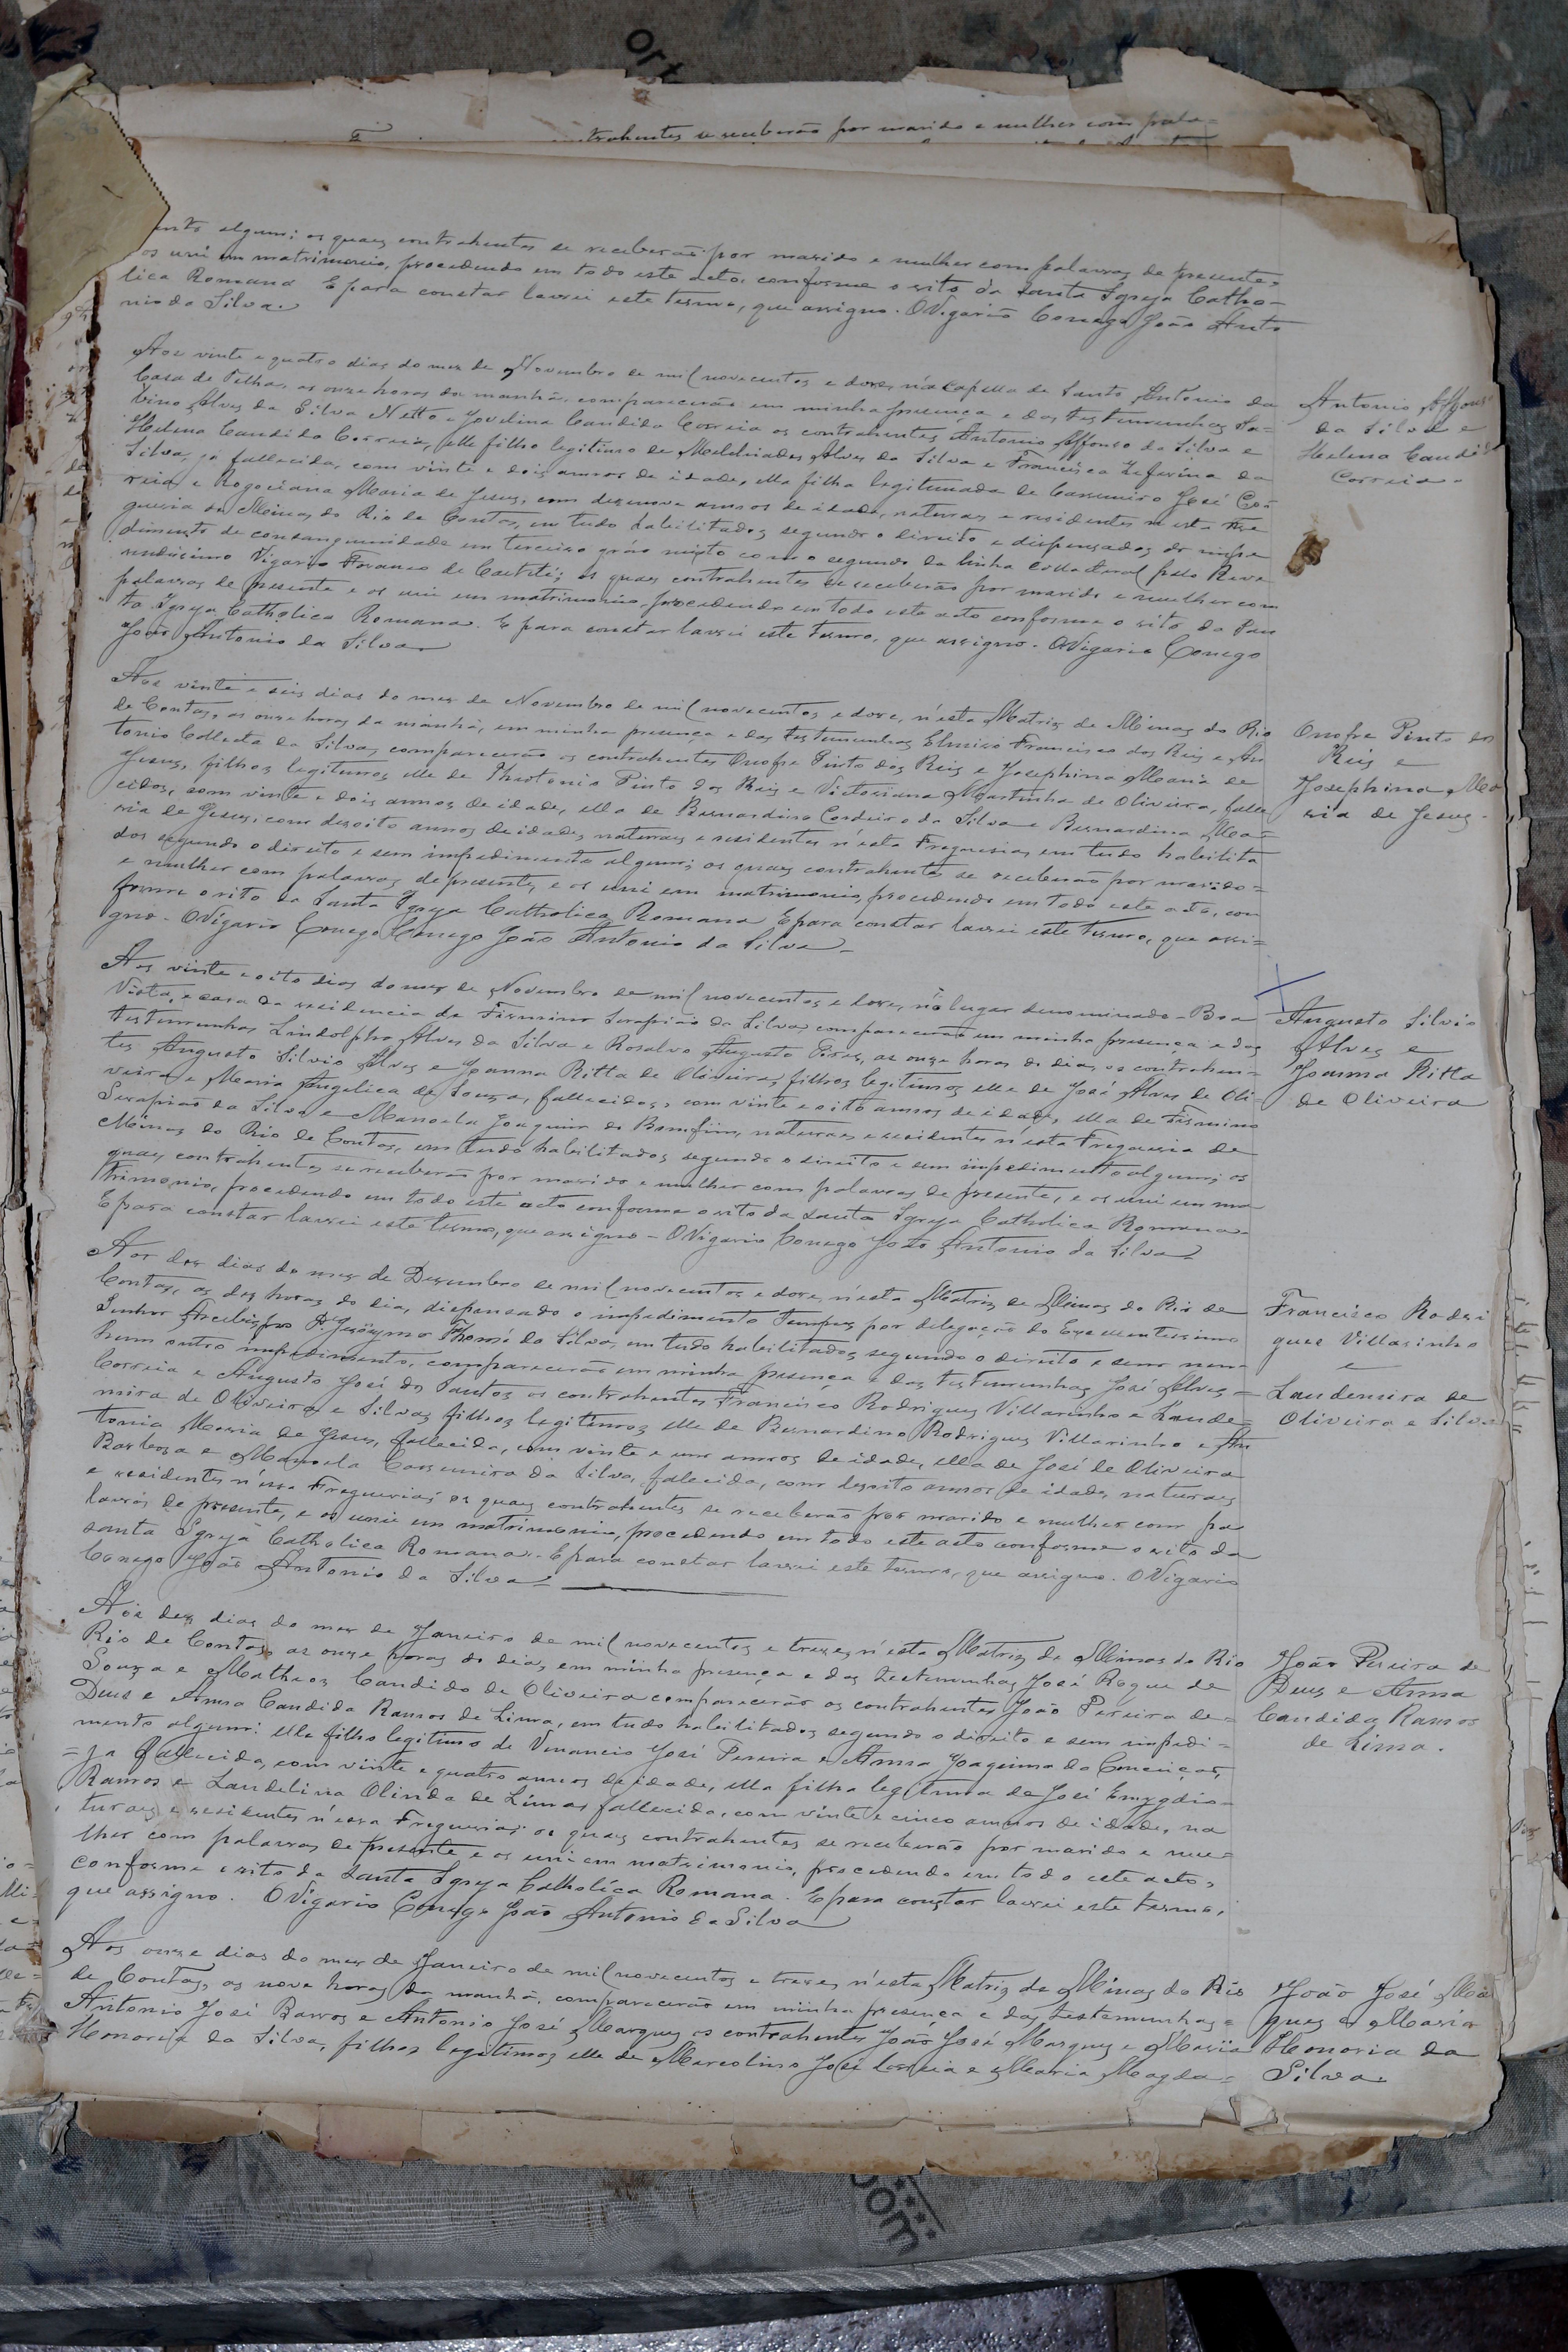 ntrahentes se receberão por marido e mulher com pala=
ento algum; os quaes contrahentes se receberão por marido e mulher com palavras de presente,
os uni em matrimonio, procedendo em todo este acto, conforme o rito da Santa Igreja Catho-
lica Romana E para constar lavrei este termo, que assigno. O Vigario Conego João Anto
nio da Silva.
Aos vinte e quatro dias do mez de Novembro de mil novecentos e doze, n'a Capella de Santo Antonio da
Casa de Telha, as onze horas da manhã, comparecerão em minha presença e das testemunhas Sa-
bino Alves da Silva Netto e Jovelina Candida Correia os contrahentes Antonio Affonso da Silva e
Helena Candida Correia, elle filho legitimo de Melchiades Alves da Silva e Francisca Zeferina da
Silva, já fallecida, com vinte e dois annos de idade, ella filha legitimada de Cassimiro José Cor-
reia e Rogociana Maria de Jesus, com desenove annos de idade, naturaes e residentes n'esta Fre
guesia de Minas do Rio de Contas, em tudo habilitados segundo o direito e dispensados do impe
dimento de consanguinidade em terceiro gráo mixto com o segundo da linha collateral pelo Reve
rendissimo Vigario Foraneo de Caetité; os quaes contrahentes se receberão por marido e mulher com
palavras de presente e os uni em matrimonio, procedendo em todo este acto conforme o rito da San
ta Igreja Catholica Romana. E para constar lavrei este termo, que assigno. O Vigario Conego
João Antonio da Silva
Antonio Affonso
da Silva e
Helena Candida
Correia.
Aos vinte e seis dias do mez de Novembro de mil novecentos e doze, n'esta Matriz de Minas do Rio
de Contas, as onze horas da manhã, em minha presença e das testemunhas Elmiro Francisco dos Reis e An
tonio Collecta da Silva, comparecerão os contrahentes Onofre Pinto dos Reis e Josephina Maria de
Jesus, filhos legitimos elle de Theotonio Pinto dos Reis e Victoriana Martinha de Oliveira, falle
cidos, com vinte e dois annos de idade, ella de Bernardino Cordeiro da Silva e Bernardina Ma-
ria de Jesus, com desoito annos de idade, naturaes e residentes n'esta Freguesia, em tudo habilita
dos segundo o direito e sem impedimento algum; os quaes contrahentes se receberão por marido=
e mulher com palavras de presente, e os uni em matrimonio, procedendo em todo este acto, con
forme o rito da Santa Igreja Catholica Romana E para constar lavrei este termo, que assi=
gno. O Vigario Conego Conego João Antonio da Silva
Onofre Pinto dos
Reis e
Josephina Ma
ria de Jesus.
Aos vinte e oito dias do mez de Novembro de mil novecentos e doze, n'o lugar denominado - Boa
Vista, e casa da residencia de Firmino Serapião da Silva, comparecerão em minha presença e das
testemunhas Lindolpho Alves da Silva e Rosalvo Augusto Pires, as onze horas do dia, os contrahen-
tes Augusto Silvio Alves e Joanna Ritta de Oliveira, filhos legitimos elle de José Alves de Oli-
veira e Maria Angelica de Souza, fallecidos, com vinte e oito annos de idade, ella de Firmino
Serapião da Silva e Manoela Joaquina do Bomfim, naturaes e residentes n'esta Freguesia de
Minas do Rio de Contas, em tudo habilitados segundo o direito e sem impedimento algum; os
quaes contrahentes se receberão por marido e mulher com palavras de presente, e os uni em ma
trimonio, procedendo em todo este acto conforme o rito da Santa Igreja Catholica Romana.
E para constar lavrei este termo, que assigno - O Vigario Conego João Antonio da Silva
Augusto Silvio
Alves e
Joanna Ritta
de Oliveira
Aos dez dias do mez de Dezembro de mil novecentos e doze, n'esta Matriz de Minas do Rio de
Contas, as dez horas do dia, dispensado o impedimento Tempus por delegação do Excellentissimo
Senhor Arcebispo D. Jeronymo Thomé da Silva, em tudo habilitados segundo o direito e sem nen-
hum outro impedimento, comparecerão em minha presença e das testemunhas José Alves=
Correia e Augusto José dos Santos os contrahentes Francisco Rodrigues Villarinho e Laude=
mira de Oliveira e Silva, filhos legitimos elle de Bernardino Rodrigues Villarinho e An
tonia Maria de Jesus, fallecida, com vinte e um annos de idade, ella de José de Oliveira
Barbosa e Manoela Cassemira da Silva, fallecida, com desoito annos de idade, naturaes
e residentes n'essa Freguesia; os quaes contrahentes se receberão por marido e mulher com pa
lavras de presente, e os uni em matrimonio, procedendo em todo este acto conforme o rito da
santa Igreja Catholica Romana. E para constar lavrei este termo, que assigno. O Vigario
Conego João Antonio da Silva
Francisco Rodri
gues Villarinho
e
Laudemira de
Oliveira e Silva
Aos dez dias do mez de Janeiro de mil novecentos e treze, n'esta Matriz de Minas do Rio
Rio de Contas, as onze horas do dia, em minha presença e das testemunhas José Roque de
Souza e Matheos Candido de Oliveira comparecerão os contrahentes João Pereira de=
Deus e Anna Candida Ramos de Lima, em tudo habilitados segundo o direito e sem impedi=
mento algum: elle filho legitimo de Venancio José Pereira e Anna Joaquina da Conceição,
=ja fallecida, com vinte e quatro annos de idade, ella filha legitima de José Emygdio=
Ramos e Laudelina Olinda de Lima, fallecida, com vinte e cinco annos de idade, na
turaes e residentes n'essa Freguesia; os quaes contrahentes se receberão por marido e mu=
lher com palavras de presente e os uni em matrimonio, procedendo em todo este acto,
conforme o rito da Santa Igreja Catholica Romana. E para constar lavrei este termo,
que assigno. O Vigario Conego João Antonio da Silva
João Pereira de
Deus e Anna
Candida Ramos
de Lima.
Aos onze dias do mez de Janeiro de mil novecentos e treze, n'esta Matriz de Minas do Rio
de Contas, as nove horas da manhã, comparecerão em minha presença e das testemunhas=
Antonio José Barros e Antonio José Marques os contrahentes João José Marques e Maria
Honoria da Silva, filhos legitimos elle de Marcolino José Correia e Maria Magda=
João José Mar
ques e Maria
Honoria da
Silva.